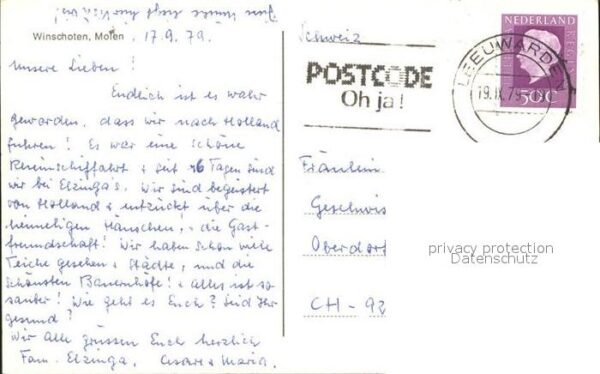 Winschoten, Molen 17.9.79.
Unsere Lieben!
Endlich ist es wahr
geworden, dass wir nach Holland
fuhren! Es war eine schöne
Rheinschiffahrt & seit 6 Tagen sind
wir bei Elzinga's. Wir sind begeistert
von Holland & entzückt über die
heimeligen Häuschen, & die Gast-
freundschaft! Wir haben schon viele
Teiche gesehen & Städte, und die
schönsten Bauernhöfe! & alles ist so
sauber! Wie geht es Euch? Seid Ihr
gesund?
Wir alle grüssen Euch herzlich
Fam. Elzinga, & Maria.
Schweiz
POSTCODE
Oh ja!
LEEUWARDEN
19.IX.79
NEDERLAND
50C
Fräulein
Geschwis
Oberdorf
CH-92
privacy protection
Datenschutz